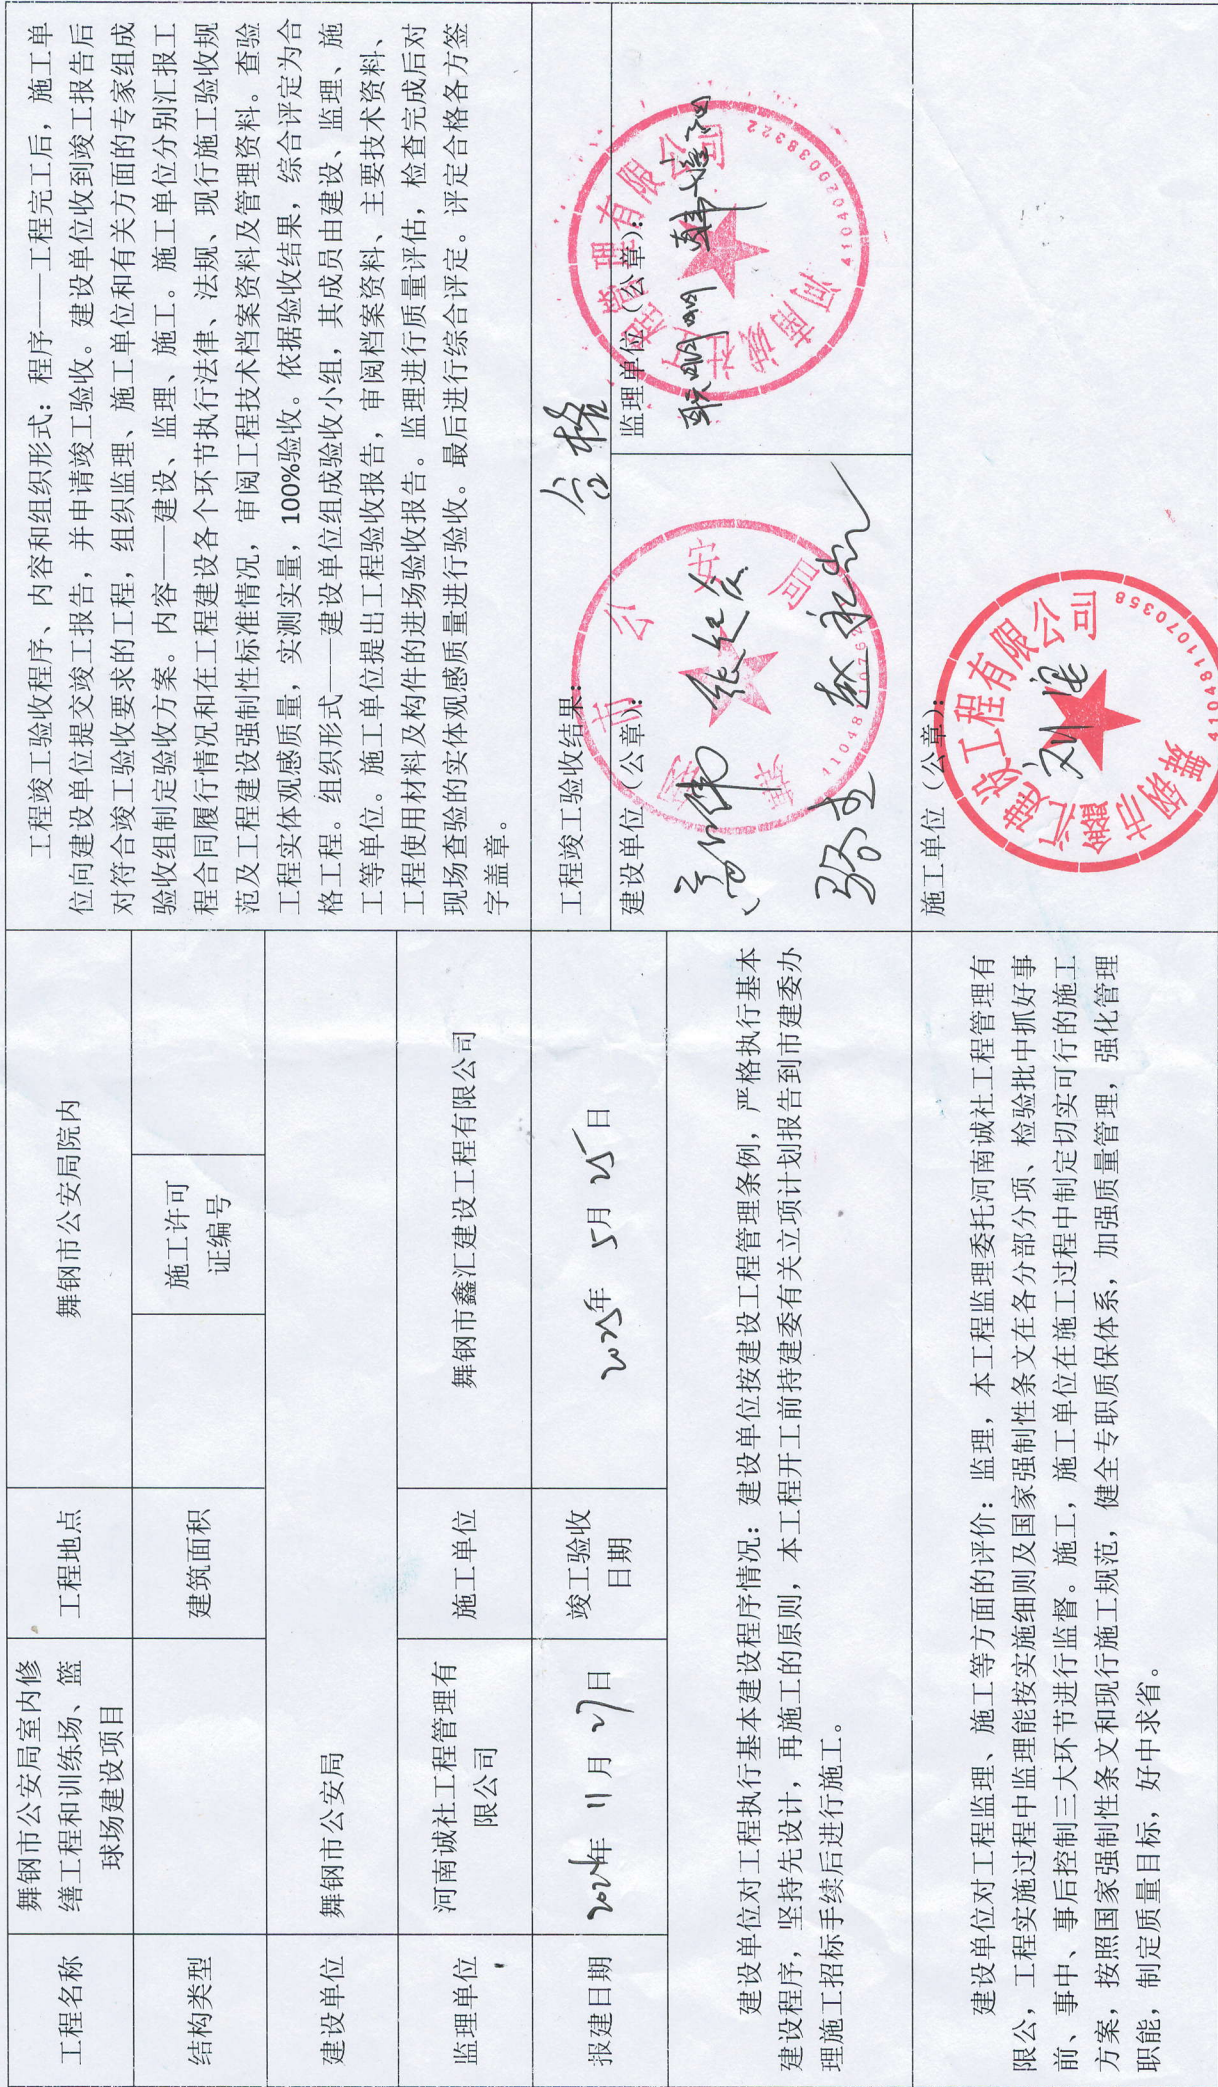 工程名称
舞钢市公安局室内修
缮工程和训练场、篮
球场建设项目
工程地点
舞钢市公安局院内
结构类型
建筑面积
施工许可
证编号
建设单位
舞钢市公安局
监理单位
河南诚社工程管理有
限公司
施工单位
舞钢市鑫汇建设工程有限公司
报建日期
2024年 11月 27日
竣工验收
日期
2025年 5月 25日
建设单位对工程执行基本建设程序情况：建设单位按建设工程管理条例，严格执行基本
建设程序，坚持先设计，再施工的原则，本工程开工前持建委有关立项计划报告到市建委办
理施工招标手续后进行施工。
建设单位对工程监理、施工等方面的评价：监理，本工程监理委托河南诚社工程管理有
限公，工程实施过程中监理能按实施细则及国家强制性条文在各分部分项、检验批中抓好事
前、事中、事后控制三大环节进行监督。施工，施工单位在施工过程中制定切实可行的施工
方案，按照国家强制性条文和现行施工规范，健全专职质保体系，加强质量管理，强化管理
职能，制定质量目标，好中求省。
工程竣工验收程序、内容和组织形式：程序——工程完工后，施工单
位向建设单位提交竣工报告，并申请竣工验收。建设单位收到竣工报告后
对符合竣工验收要求的工程，组织监理、施工单位和有关方面的专家组成
验收组制定验收方案。内容——建设、监理、施工。施工单位分别汇报工
程合同履行情况和在工程建设各个环节执行法律、法规、现行施工验收规
范及工程建设强制性标准情况，审阅工程技术档案资料及管理资料。查验
工程实体观感质量，实测实量，100%验收。依据验收结果，综合评定为合
格工程。组织形式——建设单位组成验收小组，其成员由建设、监理、施
工等单位。施工单位提出工程验收报告，审阅档案资料、主要技术资料、
工程使用材料及构件的进场验收报告。监理进行质量评估，检查完成后对
现场查验的实体观感质量进行验收。最后进行综合评定。评定合格各方签
字盖章。
工程竣工验收结果：
合格
建设单位（公章）：
舞钢市公安局
监理单位（公章）：
河南诚社工程管理有限公司
4104020038322
施工单位（公章）：
舞钢市鑫汇建设工程有限公司
4104811070358